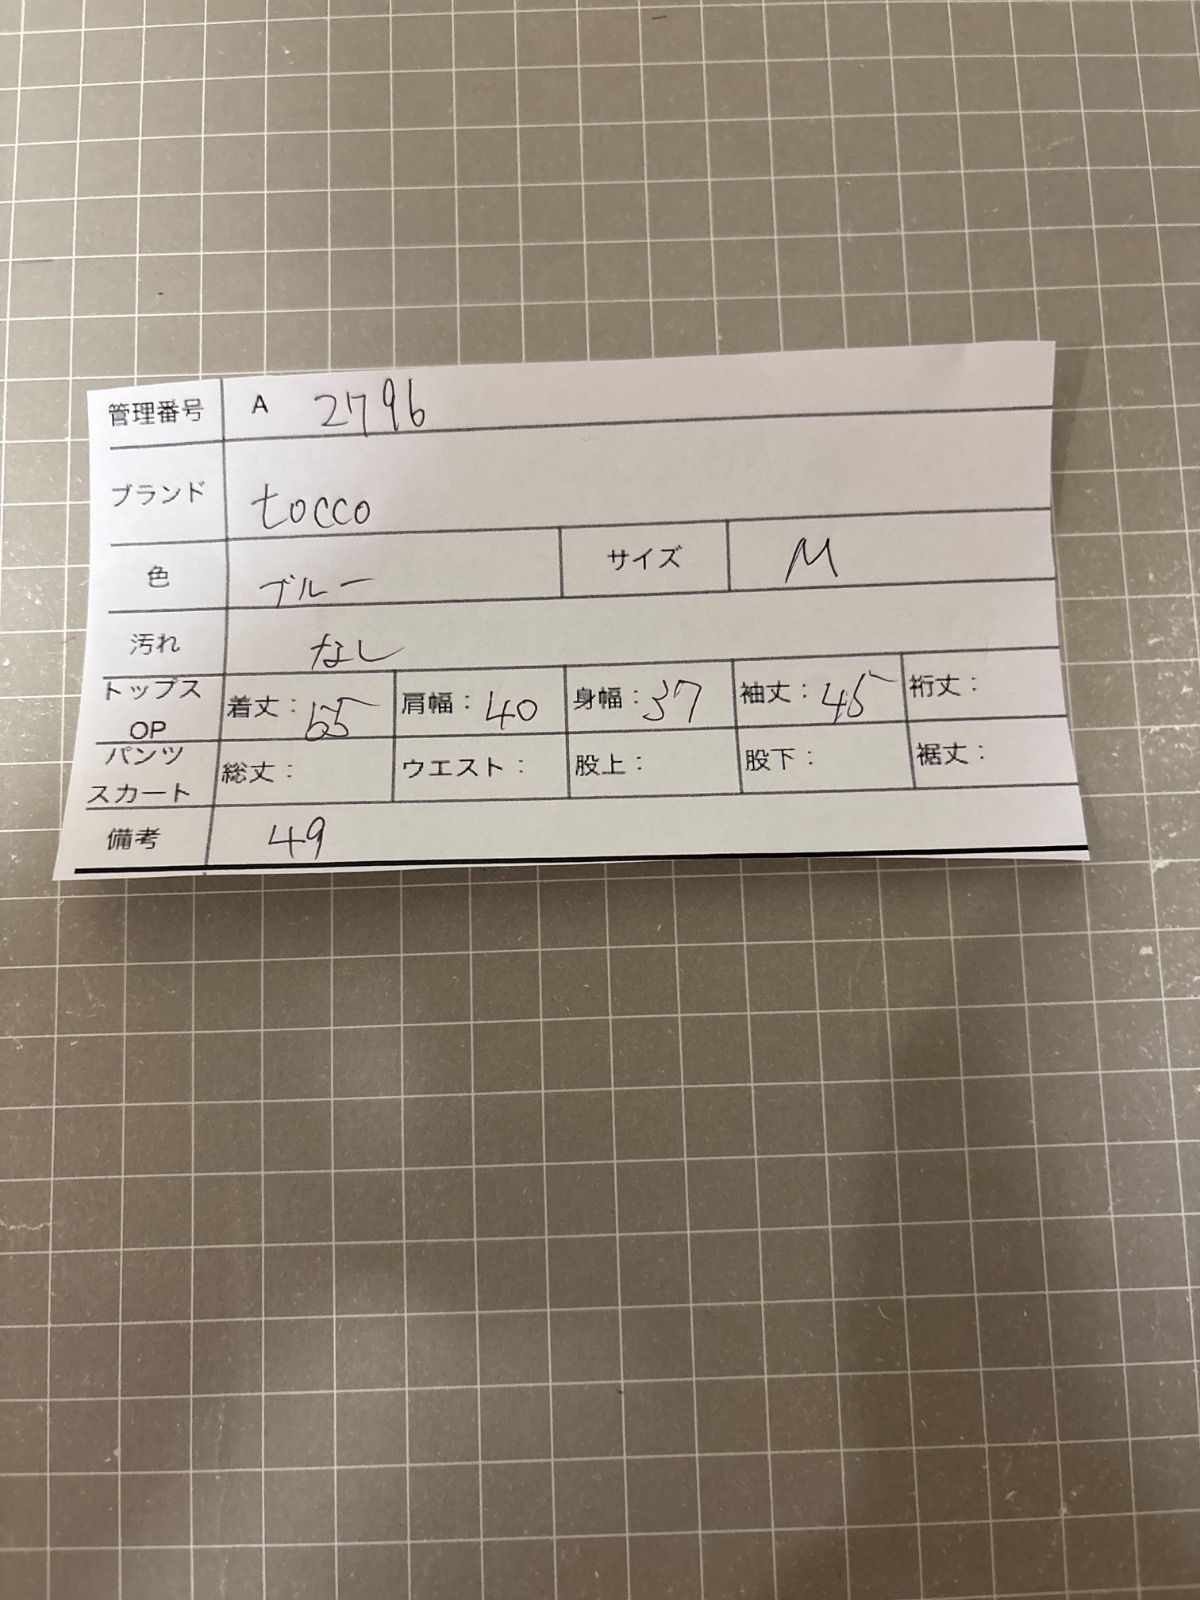 管理番号 A 2796
ブランド tocco
色 ブルー サイズ M
汚れ なし
トップス OP 着丈：65 肩幅：40 身幅：37 袖丈：45 裄丈：
パンツ スカート 総丈： ウエスト： 股上： 股下： 裾丈：
備考 49